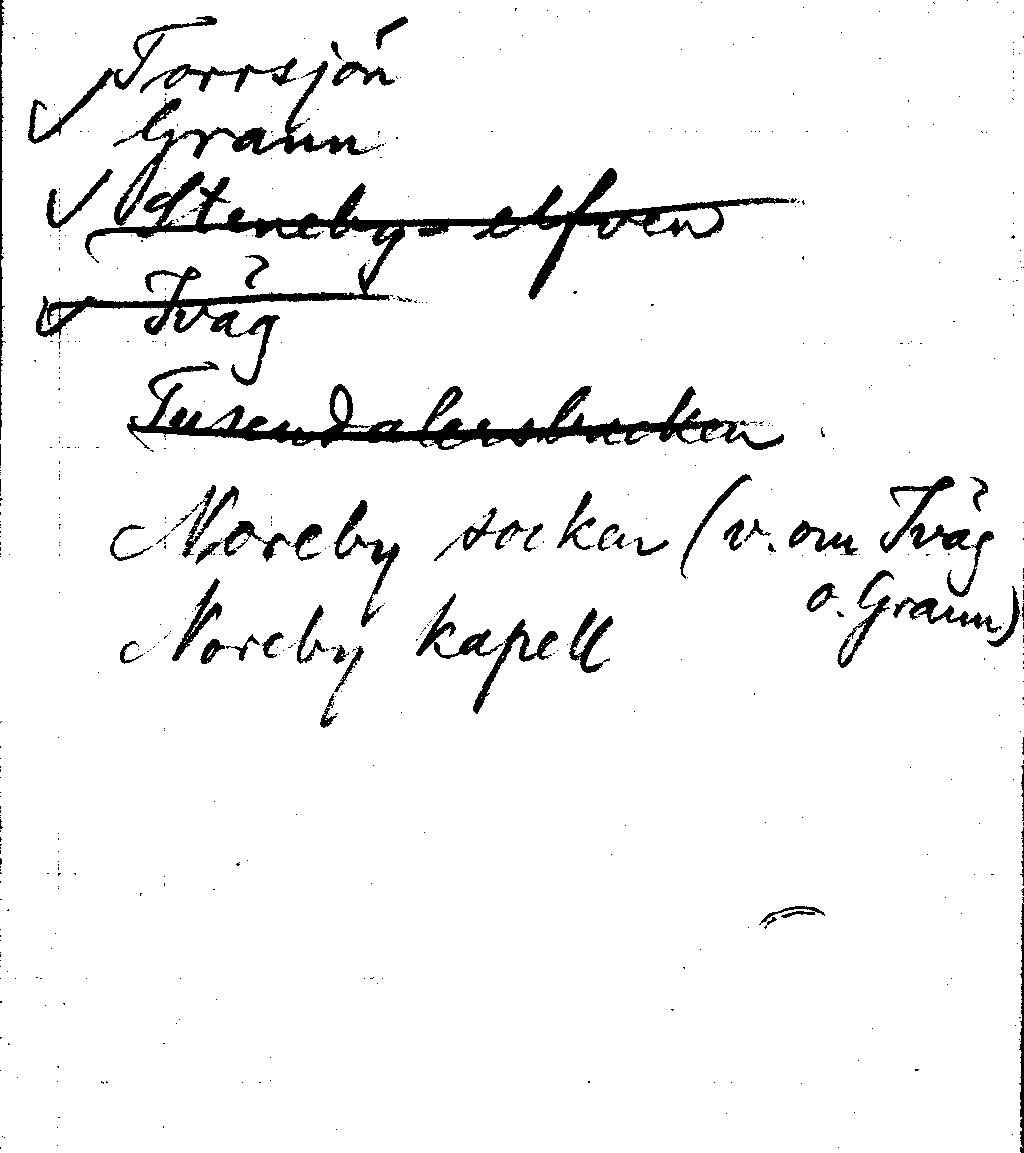 Torrsjön
Grann
Steneby-elfven
Iväg
Tusendalersbacken
Noreby socken (v. om Iväg
o. Grann)
Noreby kapell